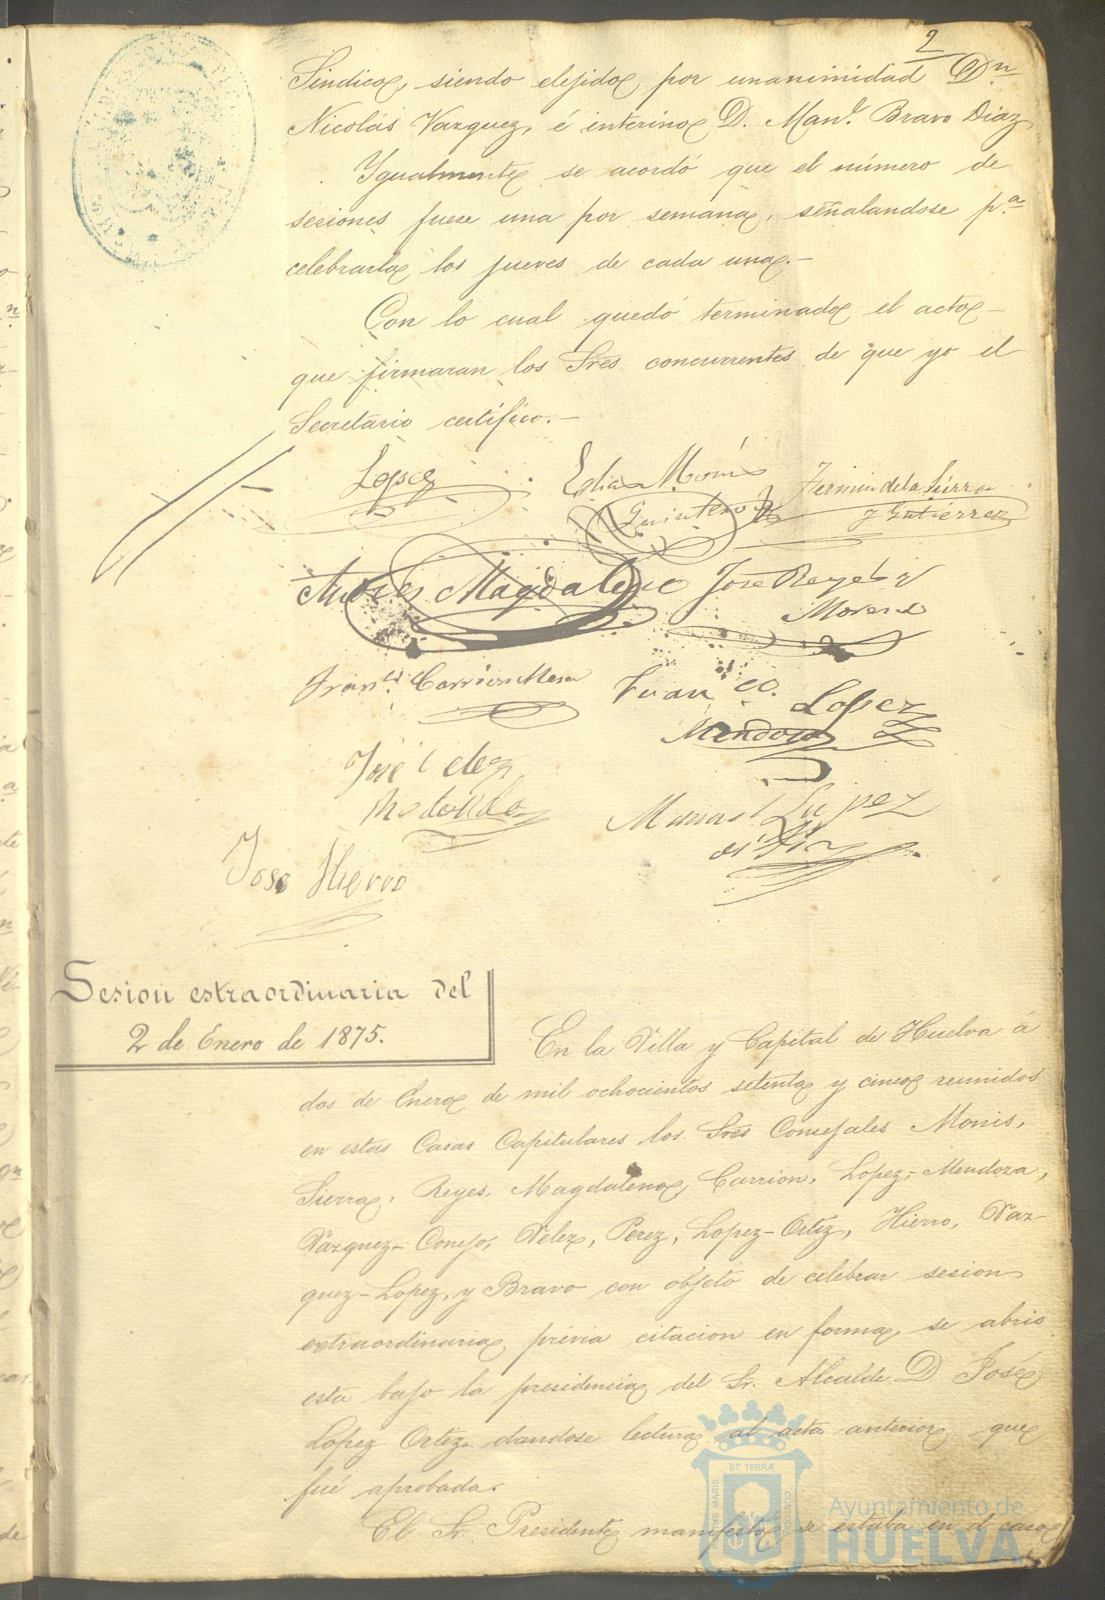 2
Sindico, siendo elejido por unanimidad Dn
Nicolás Vazquez, é interino D. Manl. Bravo Diaz,
Igualmente se acordó que el número de
sesiones fuese una por semana, señalandose pa
celebrarla los jueves de cada una.-
Con lo cual quedó terminado el acto-
que firmaran los Sres concurrentes de que yo el
Secretario certifico.-
Lopez
Elias Monis
Quintero
Fermin de la Sierra
y Gutierrez
Andres Magdalena
Jose Reyes y
Moreno
Franco Carrion Mesa
Juan
Lopez
Mendoza
José
Manuel Lopez
Jose Hierro
Sesion extraordinaria del
2 de Enero de 1875.
En la Villa y Capital de Huelva á
dos de Enero de mil ochocientos setenta y cinco reunidos
en estas Casas Capitulares los Sres Consejales Monis,
Sierra, Reyes, Magdalena, Carrion, Lopez-Mendoza,
Vazquez-Conejo, Velez, Perez, Lopez-Ortíz, Hierro, Vaz-
quez-Lopez, y Bravo con objeto de celebrar sesion
extraordinaria, prévia citacion en forma, se abrio
esta bajo la presidencia del Sr. Alcalde D José
Lopez Ortiz dandose lectura al acta anterior que
fué aprobada.
El Sr. Presidente manifestó se estaba en el caso
ET TERRÆ
Ayuntamiento de
HUELVA